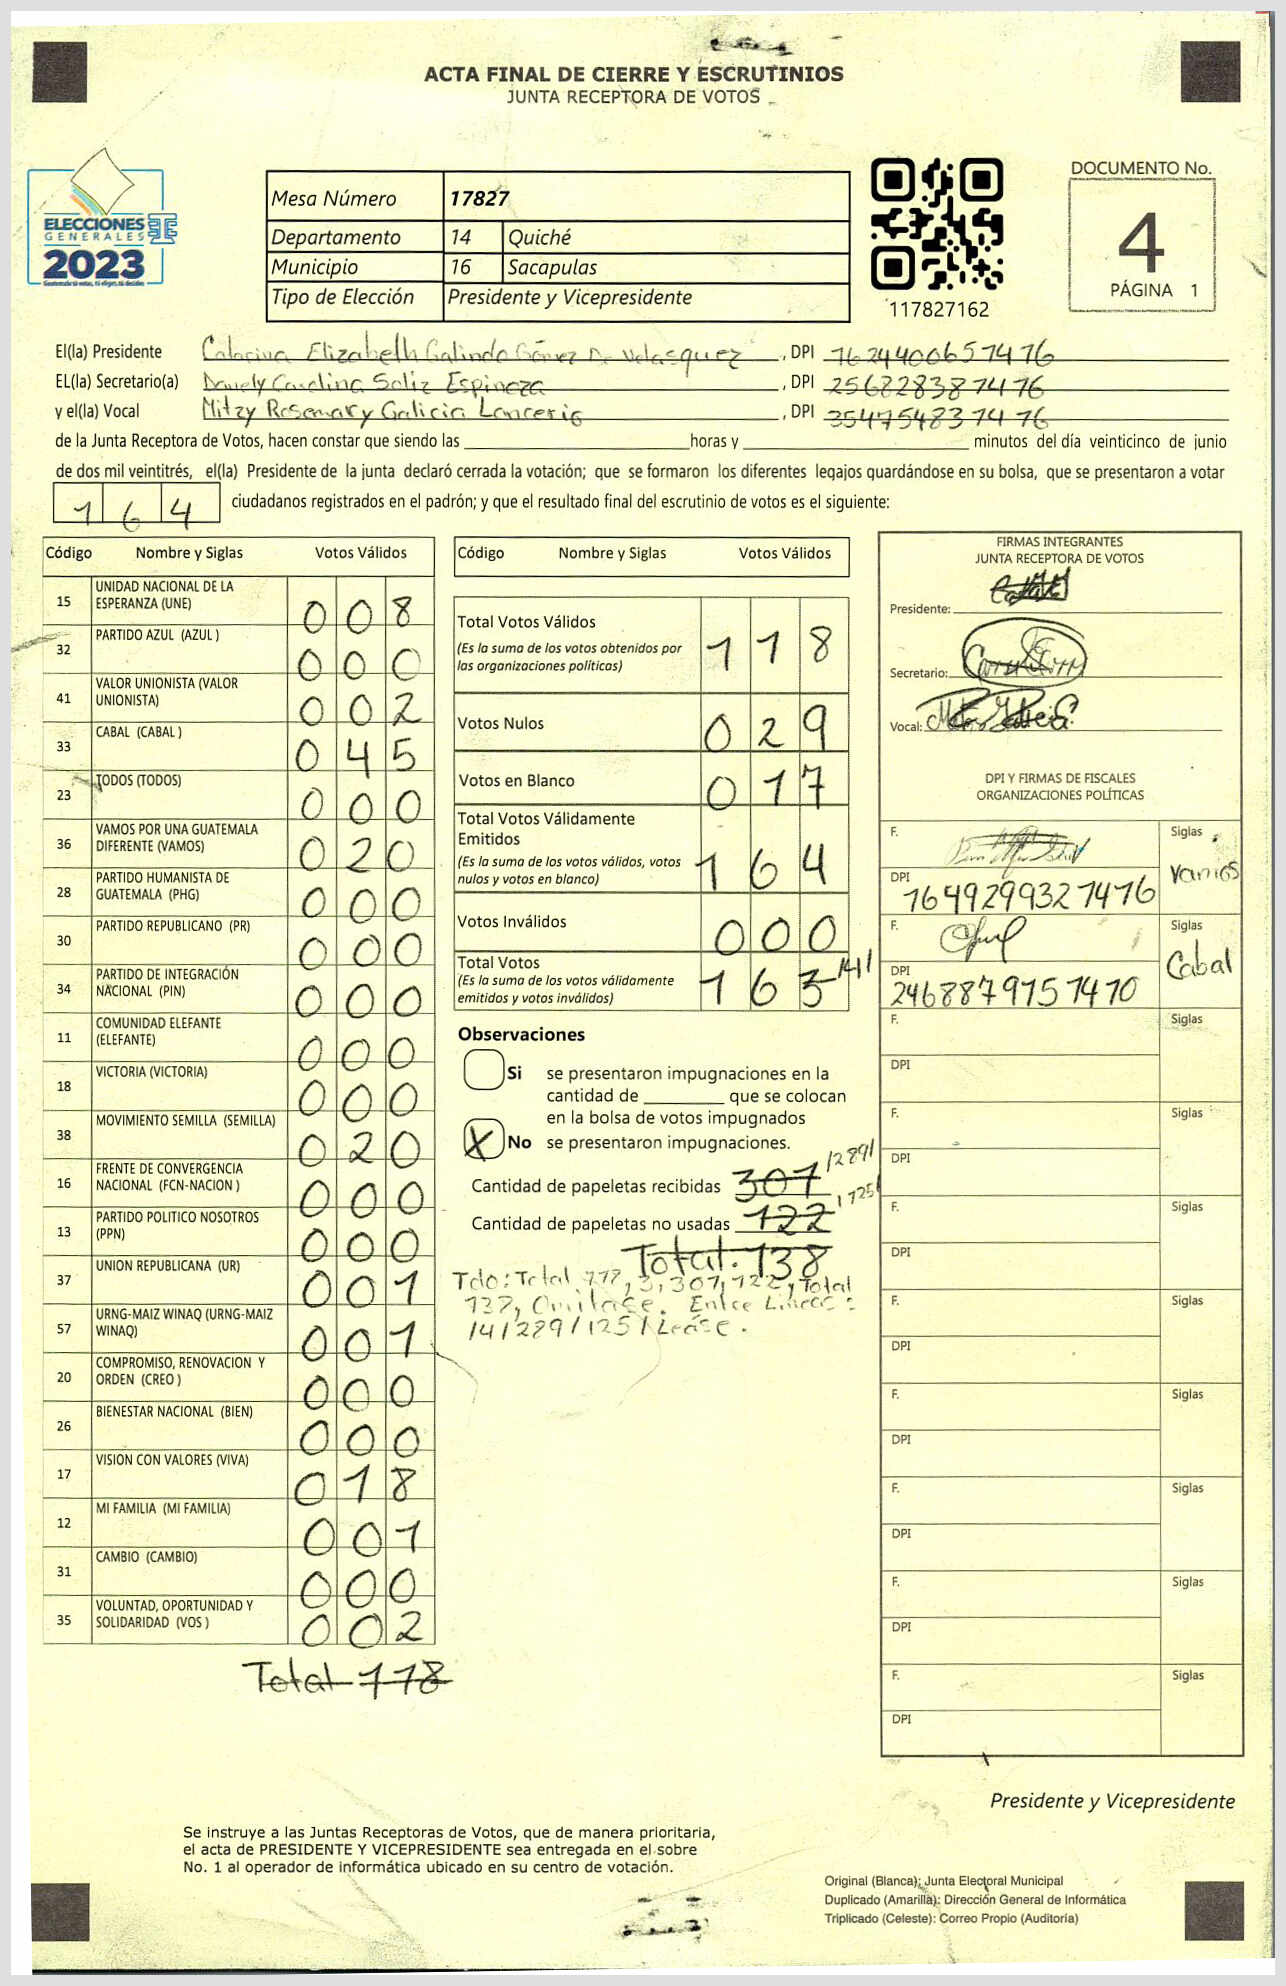 ACTA FINAL DE CIERRE Y ESCRUTINIOS
JUNTA RECEPTORA DE VOTOS
ELECCIONES
GENERALES
2023
Mesa Número 17827
Departamento 14 Quiché
Municipio 16 Sacapulas
Tipo de Elección Presidente y Vicepresidente
117827162
DOCUMENTO No.
4
PÁGINA 1
El(la) Presidente Catarina Elizabeth Galindo Gómez De Velasquez, DPI 1624400651476
EL(la) Secretario(a) Carolina Soliz Espinoza, DPI 2568283871476
y el(la) Vocal Mitzy Rosemary Galicia, DPI 3547548371476
de la Junta Receptora de Votos, hacen constar que siendo las horas y minutos del día veinticinco de junio
de dos mil veintitrés, el(la) Presidente de la junta declaró cerrada la votación; que se formaron los diferentes legajos guardándose en su bolsa, que se presentaron a votar
164 ciudadanos registrados en el padrón; y que el resultado final del escrutinio de votos es el siguiente:
Código Nombre y Siglas Votos Válidos
15 UNIDAD NACIONAL DE LA ESPERANZA (UNE) 008
32 PARTIDO AZUL (AZUL ) 000
41 VALOR UNIONISTA (VALOR UNIONISTA) 002
33 CABAL (CABAL ) 045
23 TODOS (TODOS) 000
36 VAMOS POR UNA GUATEMALA DIFERENTE (VAMOS) 020
28 PARTIDO HUMANISTA DE GUATEMALA (PHG) 000
30 PARTIDO REPUBLICANO (PR) 000
34 PARTIDO DE INTEGRACIÓN NACIONAL (PIN) 000
11 COMUNIDAD ELEFANTE (ELEFANTE) 000
18 VICTORIA (VICTORIA) 000
38 MOVIMIENTO SEMILLA (SEMILLA) 020
16 FRENTE DE CONVERGENCIA NACIONAL (FCN-NACION ) 000
13 PARTIDO POLITICO NOSOTROS (PPN) 000
37 UNION REPUBLICANA (UR) 001
57 URNG-MAIZ WINAQ (URNG-MAIZ WINAQ) 001
20 COMPROMISO, RENOVACION Y ORDEN (CREO ) 000
26 BIENESTAR NACIONAL (BIEN) 000
17 VISION CON VALORES (VIVA) 018
12 MI FAMILIA (MI FAMILIA) 001
31 CAMBIO (CAMBIO) 000
35 VOLUNTAD, OPORTUNIDAD Y SOLIDARIDAD (VOS ) 002
Total 118
Código Nombre y Siglas Votos Válidos
Total Votos Válidos 118
(Es la suma de los votos obtenidos por
las organizaciones políticas)
Votos Nulos 029
Votos en Blanco 017
Total Votos Válidamente
Emitidos 164
(Es la suma de los votos válidos, votos
nulos y votos en blanco)
Votos Inválidos 000
Total Votos 163 /4/
(Es la suma de los votos válidamente
emitidos y votos inválidos)
Observaciones
Si se presentaron impugnaciones en la
cantidad de que se colocan
en la bolsa de votos impugnados
X No se presentaron impugnaciones.
Cantidad de papeletas recibidas 307 /289/
Cantidad de papeletas no usadas 122 /125/
Total. 138
Tdo: Total 118, 3, 307, 122, Total
138, Omitase. Entre Lineas:
/4/289/125/ Lease.
FIRMAS INTEGRANTES
JUNTA RECEPTORA DE VOTOS
Presidente:
Secretario:
Vocal:
DPI Y FIRMAS DE FISCALES
ORGANIZACIONES POLÍTICAS
F. Siglas
Vamos
DPI 1649299321476
F. Siglas
Cabal
DPI 2468879151410
F. Siglas
DPI
F. Siglas
DPI
F. Siglas
DPI
F. Siglas
DPI
F. Siglas
DPI
F. Siglas
DPI
F. Siglas
DPI
F. Siglas
DPI
Presidente y Vicepresidente
Se instruye a las Juntas Receptoras de Votos, que de manera prioritaria,
el acta de PRESIDENTE Y VICEPRESIDENTE sea entregada en el sobre
No. 1 al operador de informática ubicado en su centro de votación.
Original (Blanca): Junta Electoral Municipal
Duplicado (Amarilla): Dirección General de Informática
Triplicado (Celeste): Correo Propio (Auditoría)